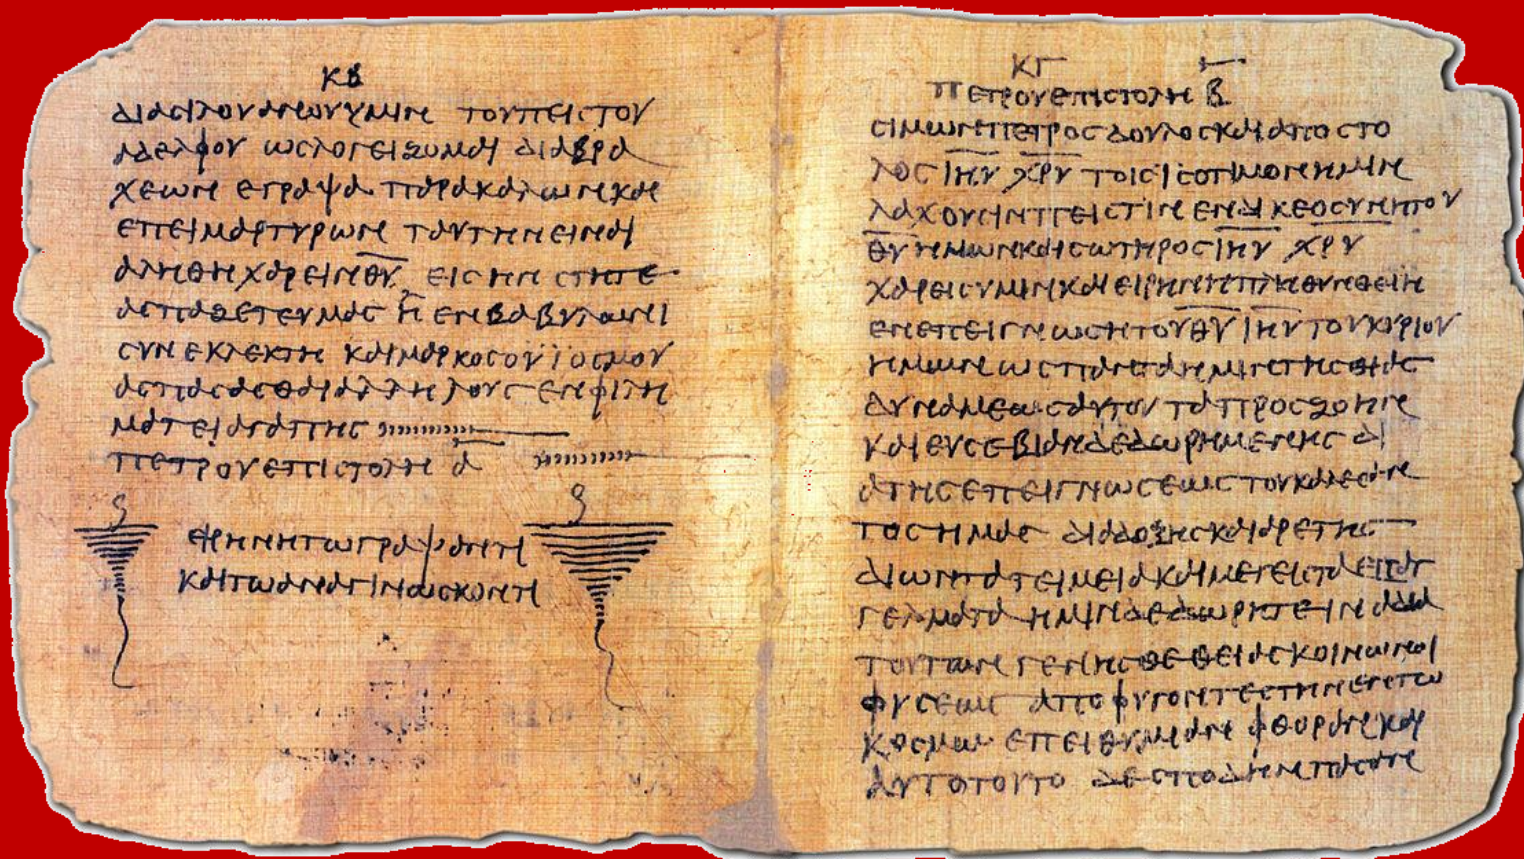 ΚΒ
ΔΙΑCΙΛΟΥΑΝΟΥΥΜΙΝ ΤΟΥΠΕΙCΤΟΥ
ΑΔΕΛΦΟΥ ΩCΛΟΓΕΙΖΟΥΜΑΙ ΔΙΑΒΡΑ
ΧΕΩΝ ΕΓΡΑΨΑ ΠΑΡΑΚΑΛΩΝΚΑΙ
ΕΠΕΙΜΑΡΤΥΡΩΝ ΤΑΥΤΗΝΕΙΝΑΙ
ΑΛΗΘΗΧΑΡΕΙΝΘ̅Υ̅ ΕΙCΗΝ CΤΗΤΕ
ΑCΠΑΖΕΤΕΥΜΑC Η ΕΝΒΑΒΥΛΩΝΙ
CΥΝΕΚΛΕΚΤΗ ΚΑΙΜΑΡΚΟCΟΥΪΟCΜΟΥ
ΑCΠΑCΑCΘΑΙΑΛΛΗΛΟΥC ΕΝΦΙΛΗ
ΜΑΤΕΙΑΓΑΠΗC
ΠΕΤΡΟΥΕΠΙCΤΟΛΗ Α̅
ΕΙΡΗΝΗΤΩΓΡΑΨΑΝΤΙ
ΚΑΙΤΩΑΝΑΓΙΝΩCΚΟΝΤΙ
ΚΓ
ΠΕΤΡΟΥΕΠΙCΤΟΛΗ Β̅
CΙΜΩΝΠΕΤΡΟC ΔΟΥΛΟCΚΑΙΑΠΟCΤΟ
ΛΟC Ι̅Η̅Υ̅ Χ̅Ρ̅Υ̅ ΤΟΙCΙCΟΤΙΜΟΝΗΜΙΝ
ΛΑΧΟΥCΙΝΠΕΙCΤΙΝ ΕΝΔΙΚΕΟCΥΝΗΤΟΥ
Θ̅Υ̅ ΗΜΩΝΚΑΙCΩΤΗΡΟC Ι̅Η̅Υ̅ Χ̅Ρ̅Υ̅
ΧΑΡΕΙCΥΜΙΝΚΑΙΕΙΡΗΝΗΠΛΗΘΥΝΘΕΙΗ
ΕΝΕΠΕΙΓΝΩCΗΤΟΥΘ̅Υ̅ Ι̅Η̅Υ̅ ΤΟΥΚΥΡΙΟΥ
ΗΜΩΝ ΩCΠΑΝΤΑΗΜΙΝΤΗCΘΙΑC
ΔΥΝΑΜΕΩCΑΥΤΟΥ ΤΑΠΡΟCΖΩΗΝ
ΚΑΙΕΥCΕΒΙΑΝΔΕΔΩΡΗΜΕΝΗC ΔΙ
ΑΤΗCΕΠΕΙΓΝΩCΕΩC ΤΟΥΚΑΛΕCΑΝ
ΤΟCΗΜΑC ΔΙΑΔΟΞΗCΚΑΙΑΡΕΤΗC
ΔΙΩΝΤΑΤΕΙΜΕΙΑΚΑΙΜΕΓΕΙCΤΑΕΠΑΓ
ΓΕΛΜΑΤΑ ΗΜΙΝΔΕΔΩΡΗΤΕΙΝΑΔΙΑ
ΤΟΥΤΩΝ ΓΕΝΗCΘΕ ΘΕΙΑCΚΟΙΝΩΝΟΙ
ΦΥCΕΩC ΑΠΟΦΥΓΟΝΤΕCΤΗΝΕΝΤΩ
ΚΟCΜΩ ΕΠΕΙΘΥΜΙΑΝ ΦΘΟΡΑΝΚΑΙ
ΑΥΤΟΤΟΥΤΟ ΔΕCΠΟΔΗΝΠΑCΑΝ